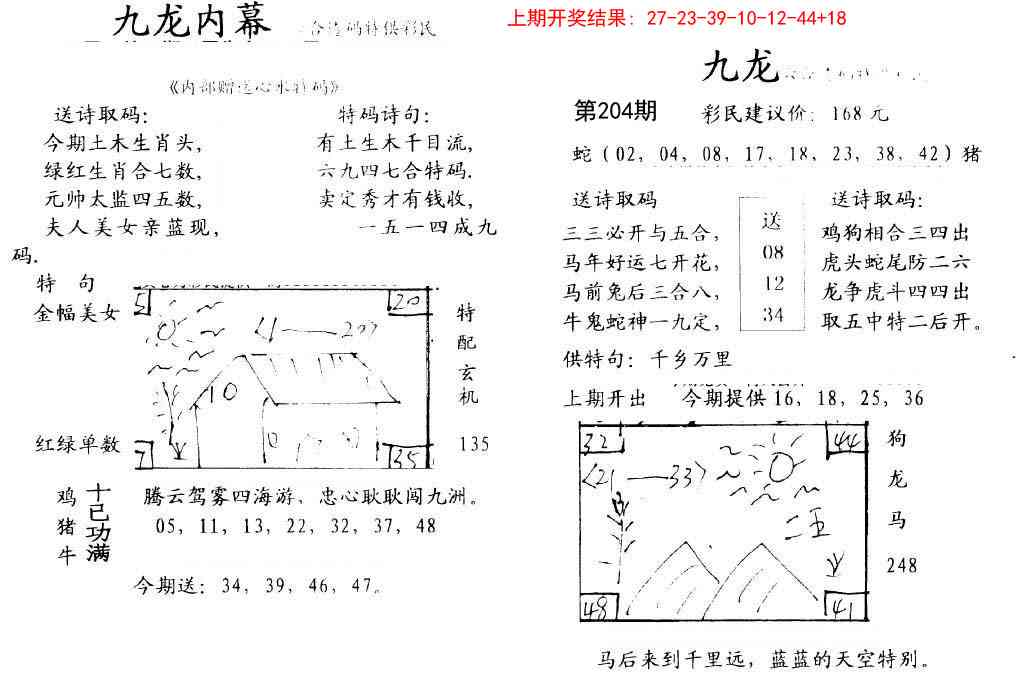 九龙内幕
码特供彩民
上期开奖结果: 27-23-39-10-12-44+18
《内部赠送心水特码》
送诗取码:
今期土木生肖头,
绿红生肖合七数,
元帅太监四五数,
夫人美女亲蓝现,
特码诗句:
有土生木千目流,
六九四七合特码.
卖定秀才有钱收,
一五一四成九
码.
特 句
金幅美女
红绿单数
5
20
<1——20>
10
10
7
35
特
配
玄
机
135
鸡
猪
牛
十己功满
腾云驾雾四海游、忠心耿耿闯九洲。
05, 11, 13, 22, 32, 37, 48
今期送: 34, 39, 46, 47。
九龙
第204期
彩民建议价: 168 元
蛇 (02, 04, 08, 17, 18, 23, 38, 42) 猪
送诗取码
三三必开与五合,
马年好运七开花,
马前兔后三合八,
牛鬼蛇神一九定,
送
08
12
34
送诗取码:
鸡狗相合三四出
虎头蛇尾防二六
龙争虎斗四四出
取五中特二后开。
供特句: 千乡万里
上期开出 今期提供 16, 18, 25, 36
32
44
<21——33>
二五
48
41
狗
龙
马
248
马后来到千里远, 蓝蓝的天空特别。